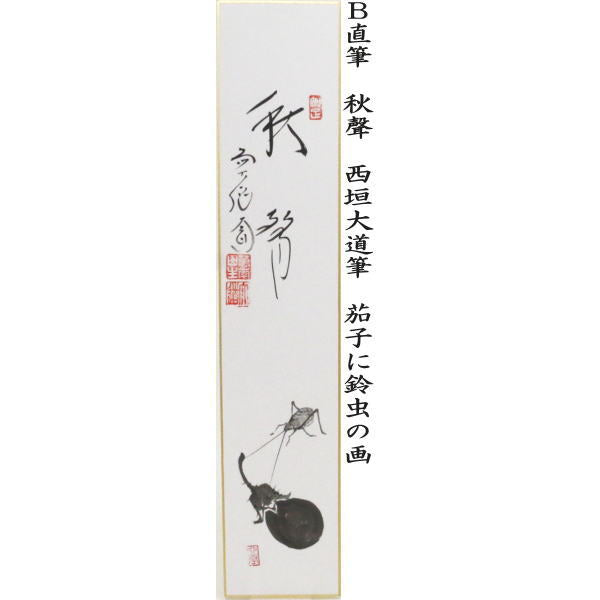 B直筆　秋聲　西垣大道筆　茄子に鈴虫の画
秋聲